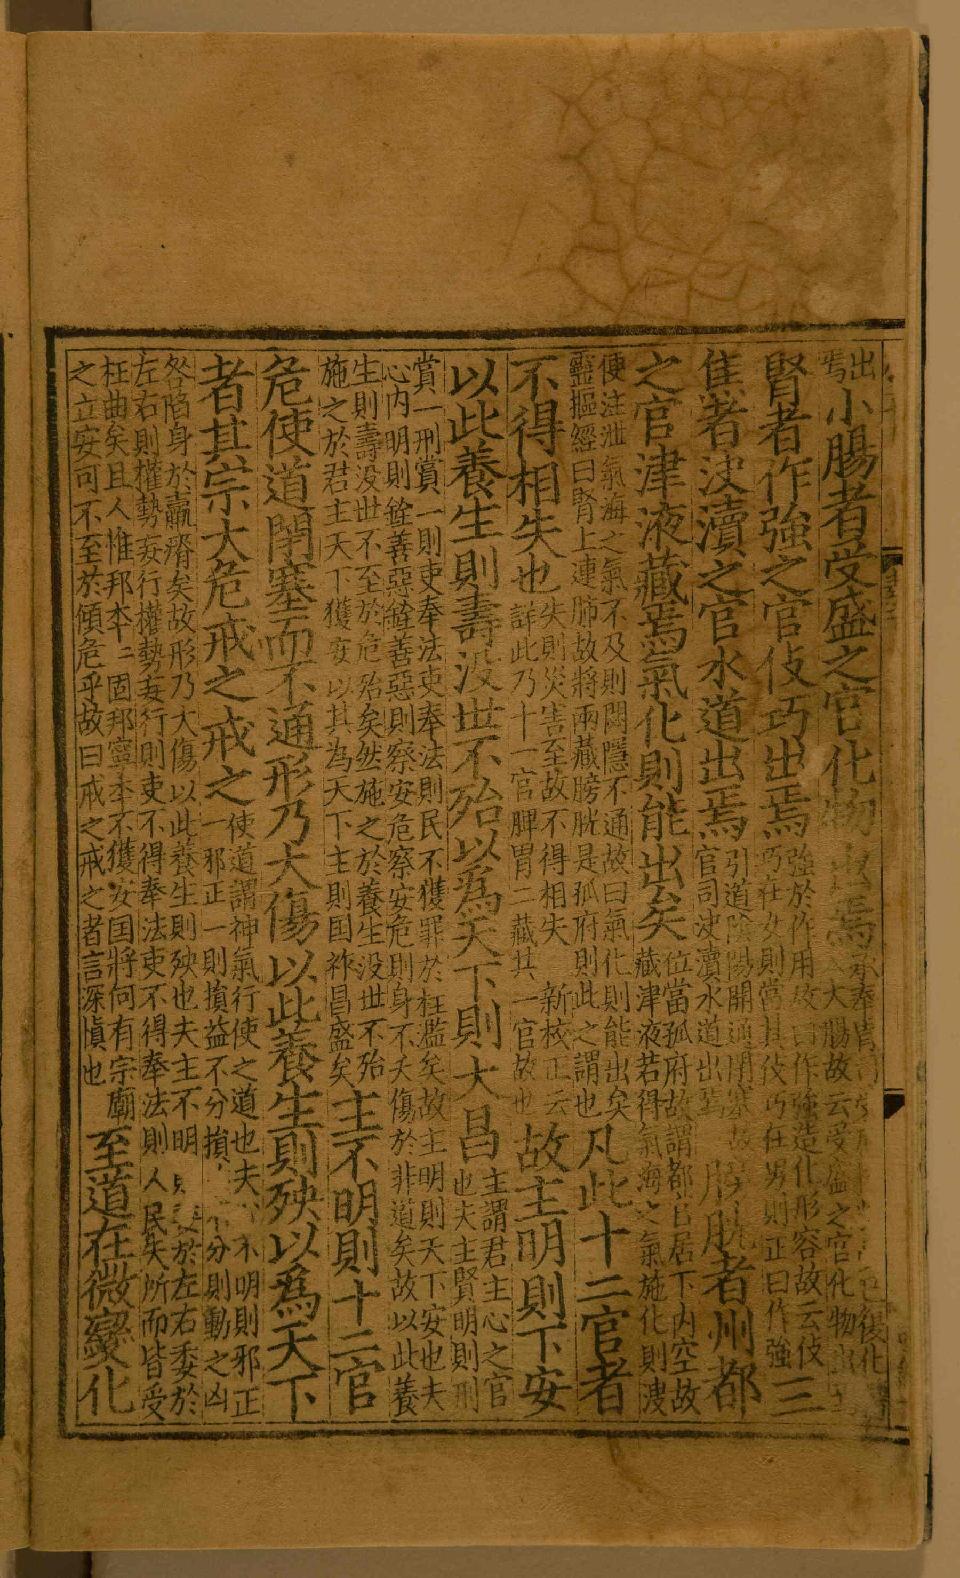 出焉小腸者受盛之官化物出焉承奉胃司受盛復化大腸故云受盛之官化物出焉
腎者作強之官伎巧出焉強於作用故曰作強造化形容故云伎巧在女則當其伎巧在男則正曰作強三
焦者決瀆之官水道出焉引道陰陽開通閉塞故官司決瀆水道出焉膀胱者州都
之官津液藏焉氣化則能出矣位當孤府故謂都官居下內空故藏津液若得氣海之氣施化則溲
便注泄氣海之氣不及則閟隱不通故曰氣化則能出矣靈樞經曰腎上連肺故將兩藏膀胱是孤府則此之謂也凡此十二官者
不得相失也失則災害至故不得相失新校正云詳此乃十一官脾胃二藏共一官故也故主明則下安
以此養生則壽沒世不殆以為天下則大昌主謂君主心之官也夫主賢明則刑
賞一刑賞一則吏奉法吏奉法則民不獲罪於枉濫矣故主明則天下安也夫心內明則銓善惡銓善惡則察安危察安危則身不夭傷於非道矣故以此養
生則壽没世不至於危殆矣然施之於養生没世不殆施之於君主天下獲安以其為天下主則国祚昌盛矣主不明則十二官
危使道閉塞而不通形乃大傷以此養生則殃以為天下
者其宗大危戒之戒之使道謂神氣行使之道也夫不明則邪正一邪正一則損益不分損分則動之凶
咎陷身於羸瘠矣故形乃大傷以此養生則殃也夫主不明於左右委於左右則權勢妄行權勢妄行則吏不得奉法吏不得奉法則人民失所而皆受
枉曲矣且人惟邦本二固邦寧本不獲安国將何有宗廟之立安可不至於傾危乎故曰戒之戒之者言深慎也至道在微變化